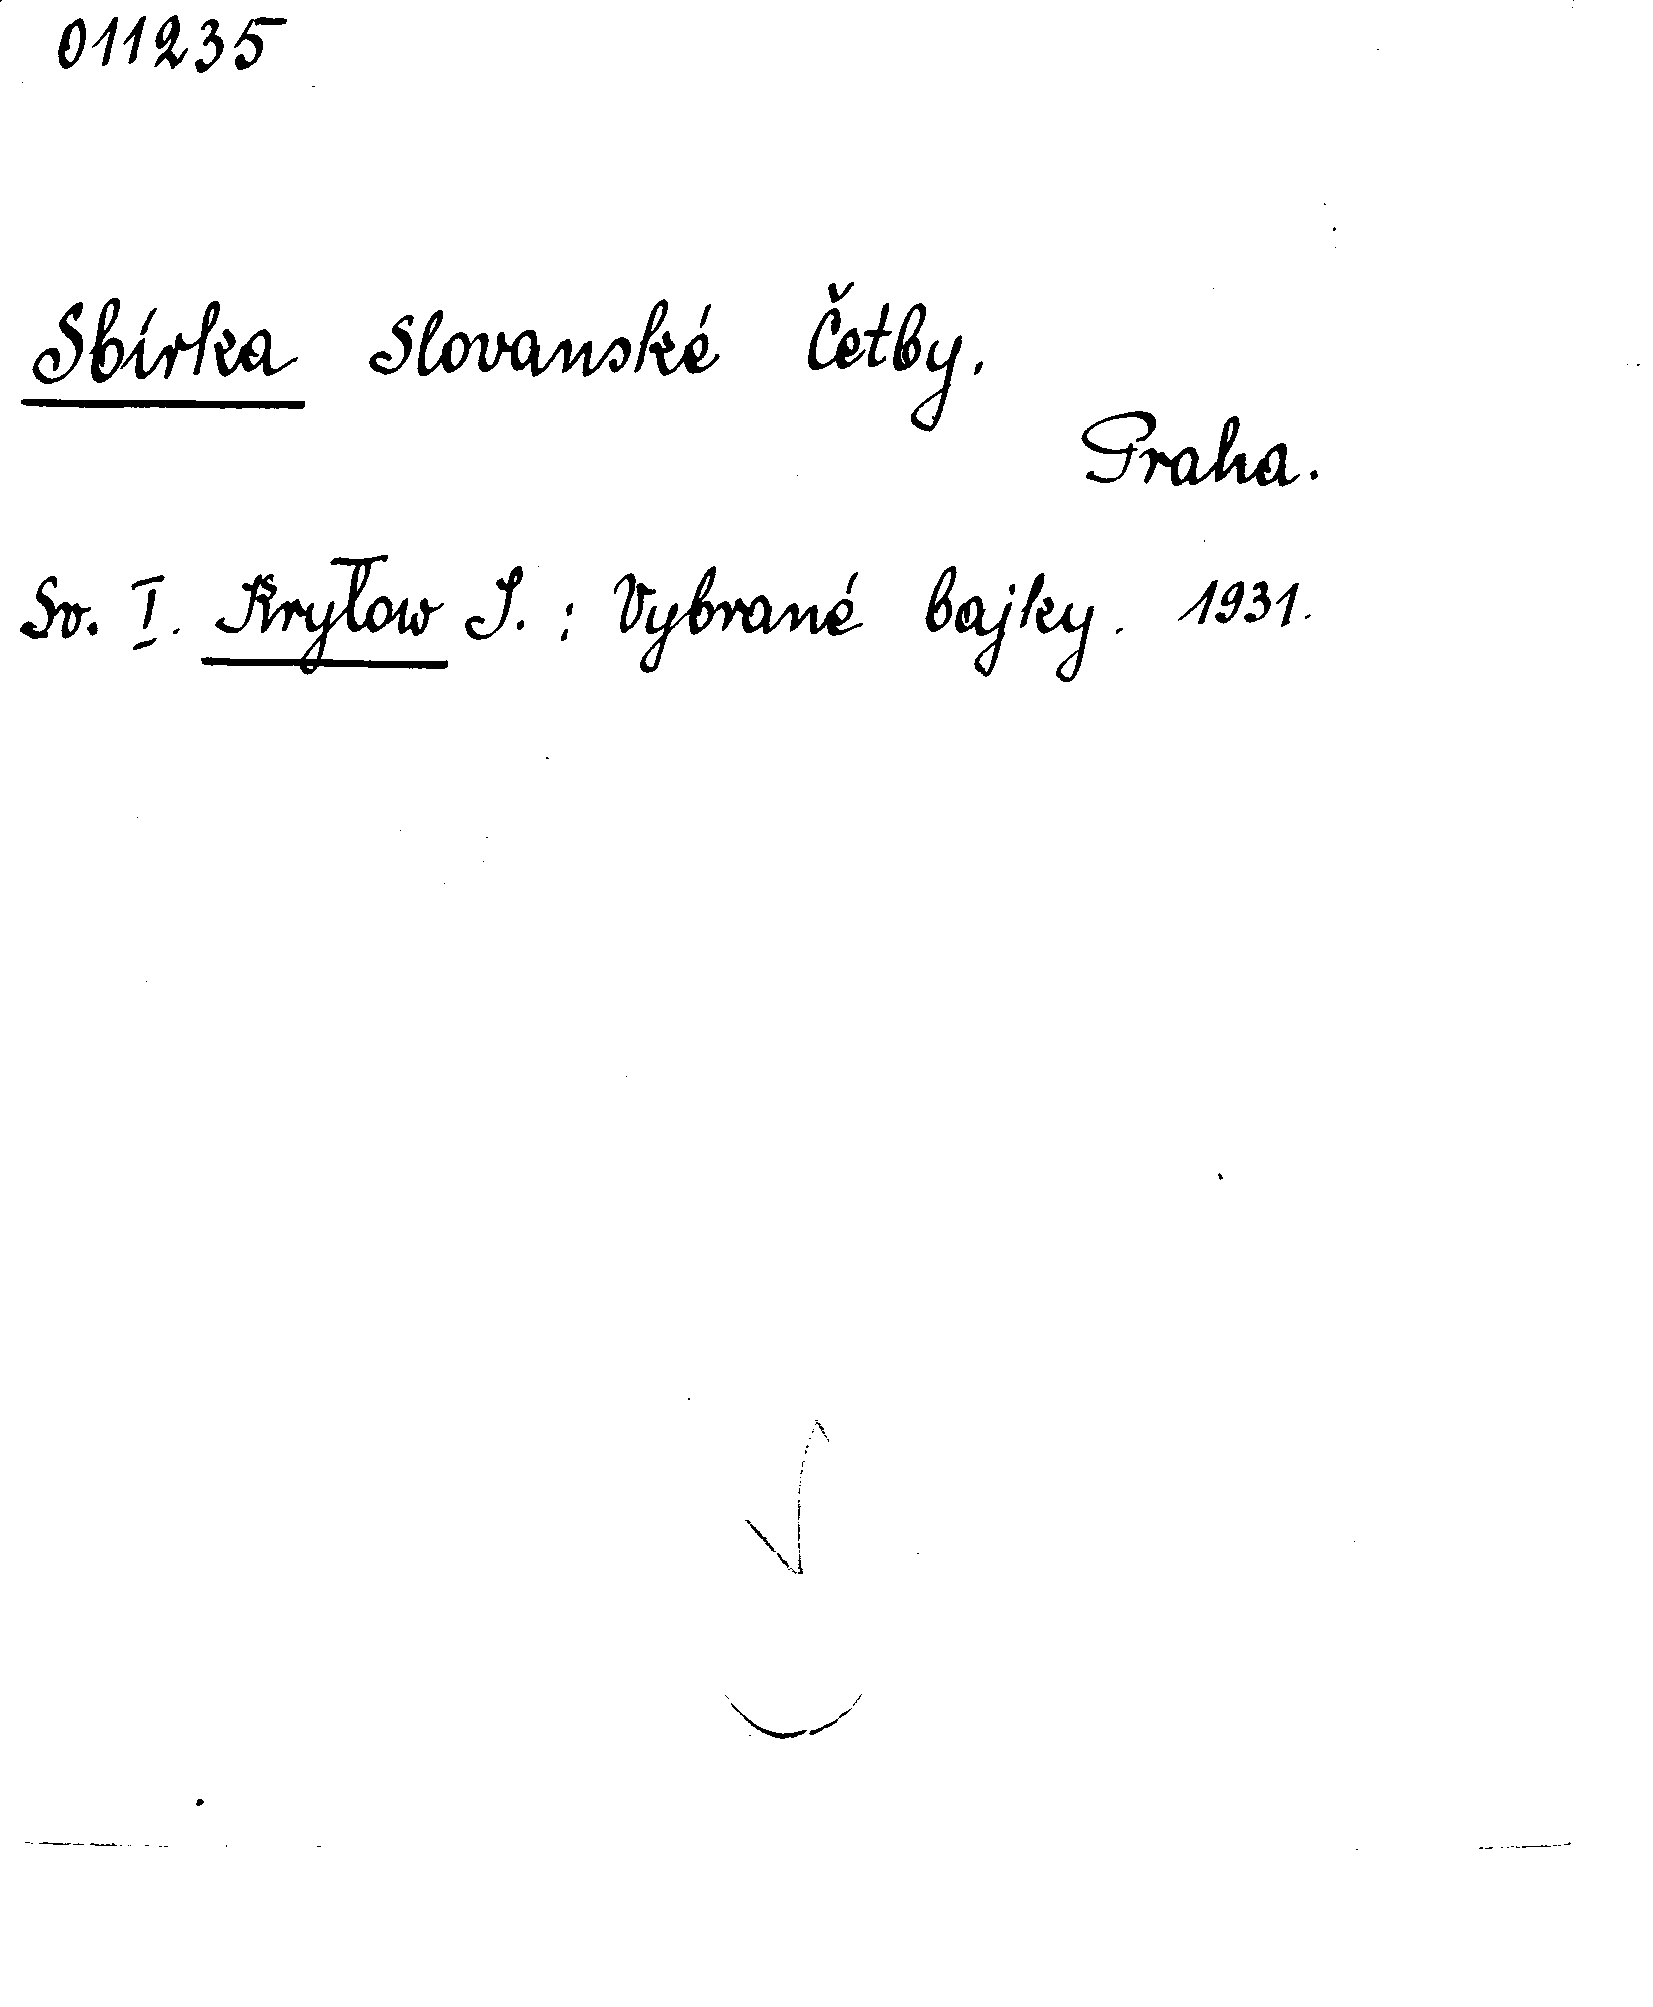 011235
Sbírka Slovanské Četby.
Praha.
Sv. I. Kryłow J.: Vybrané bajky. 1931.